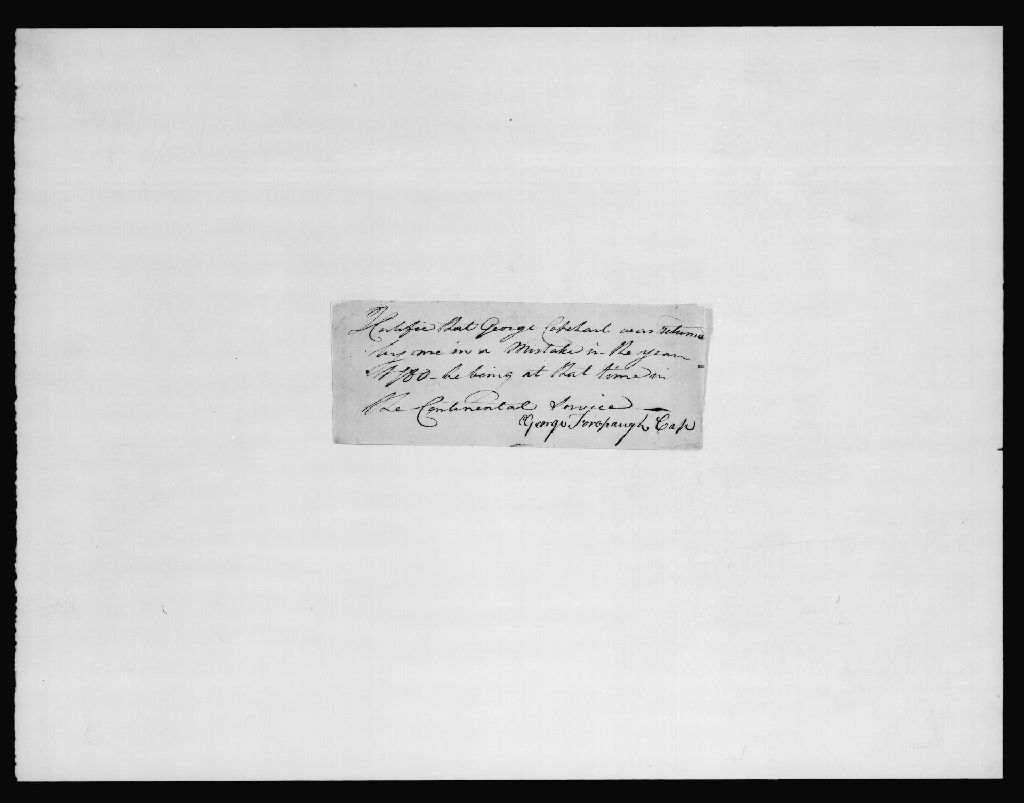 I Certifie that George Capehart was returnd
by me in a Mistake in the year
1780 - he being at that time in
the Continental Service
George Forepaugh Cap